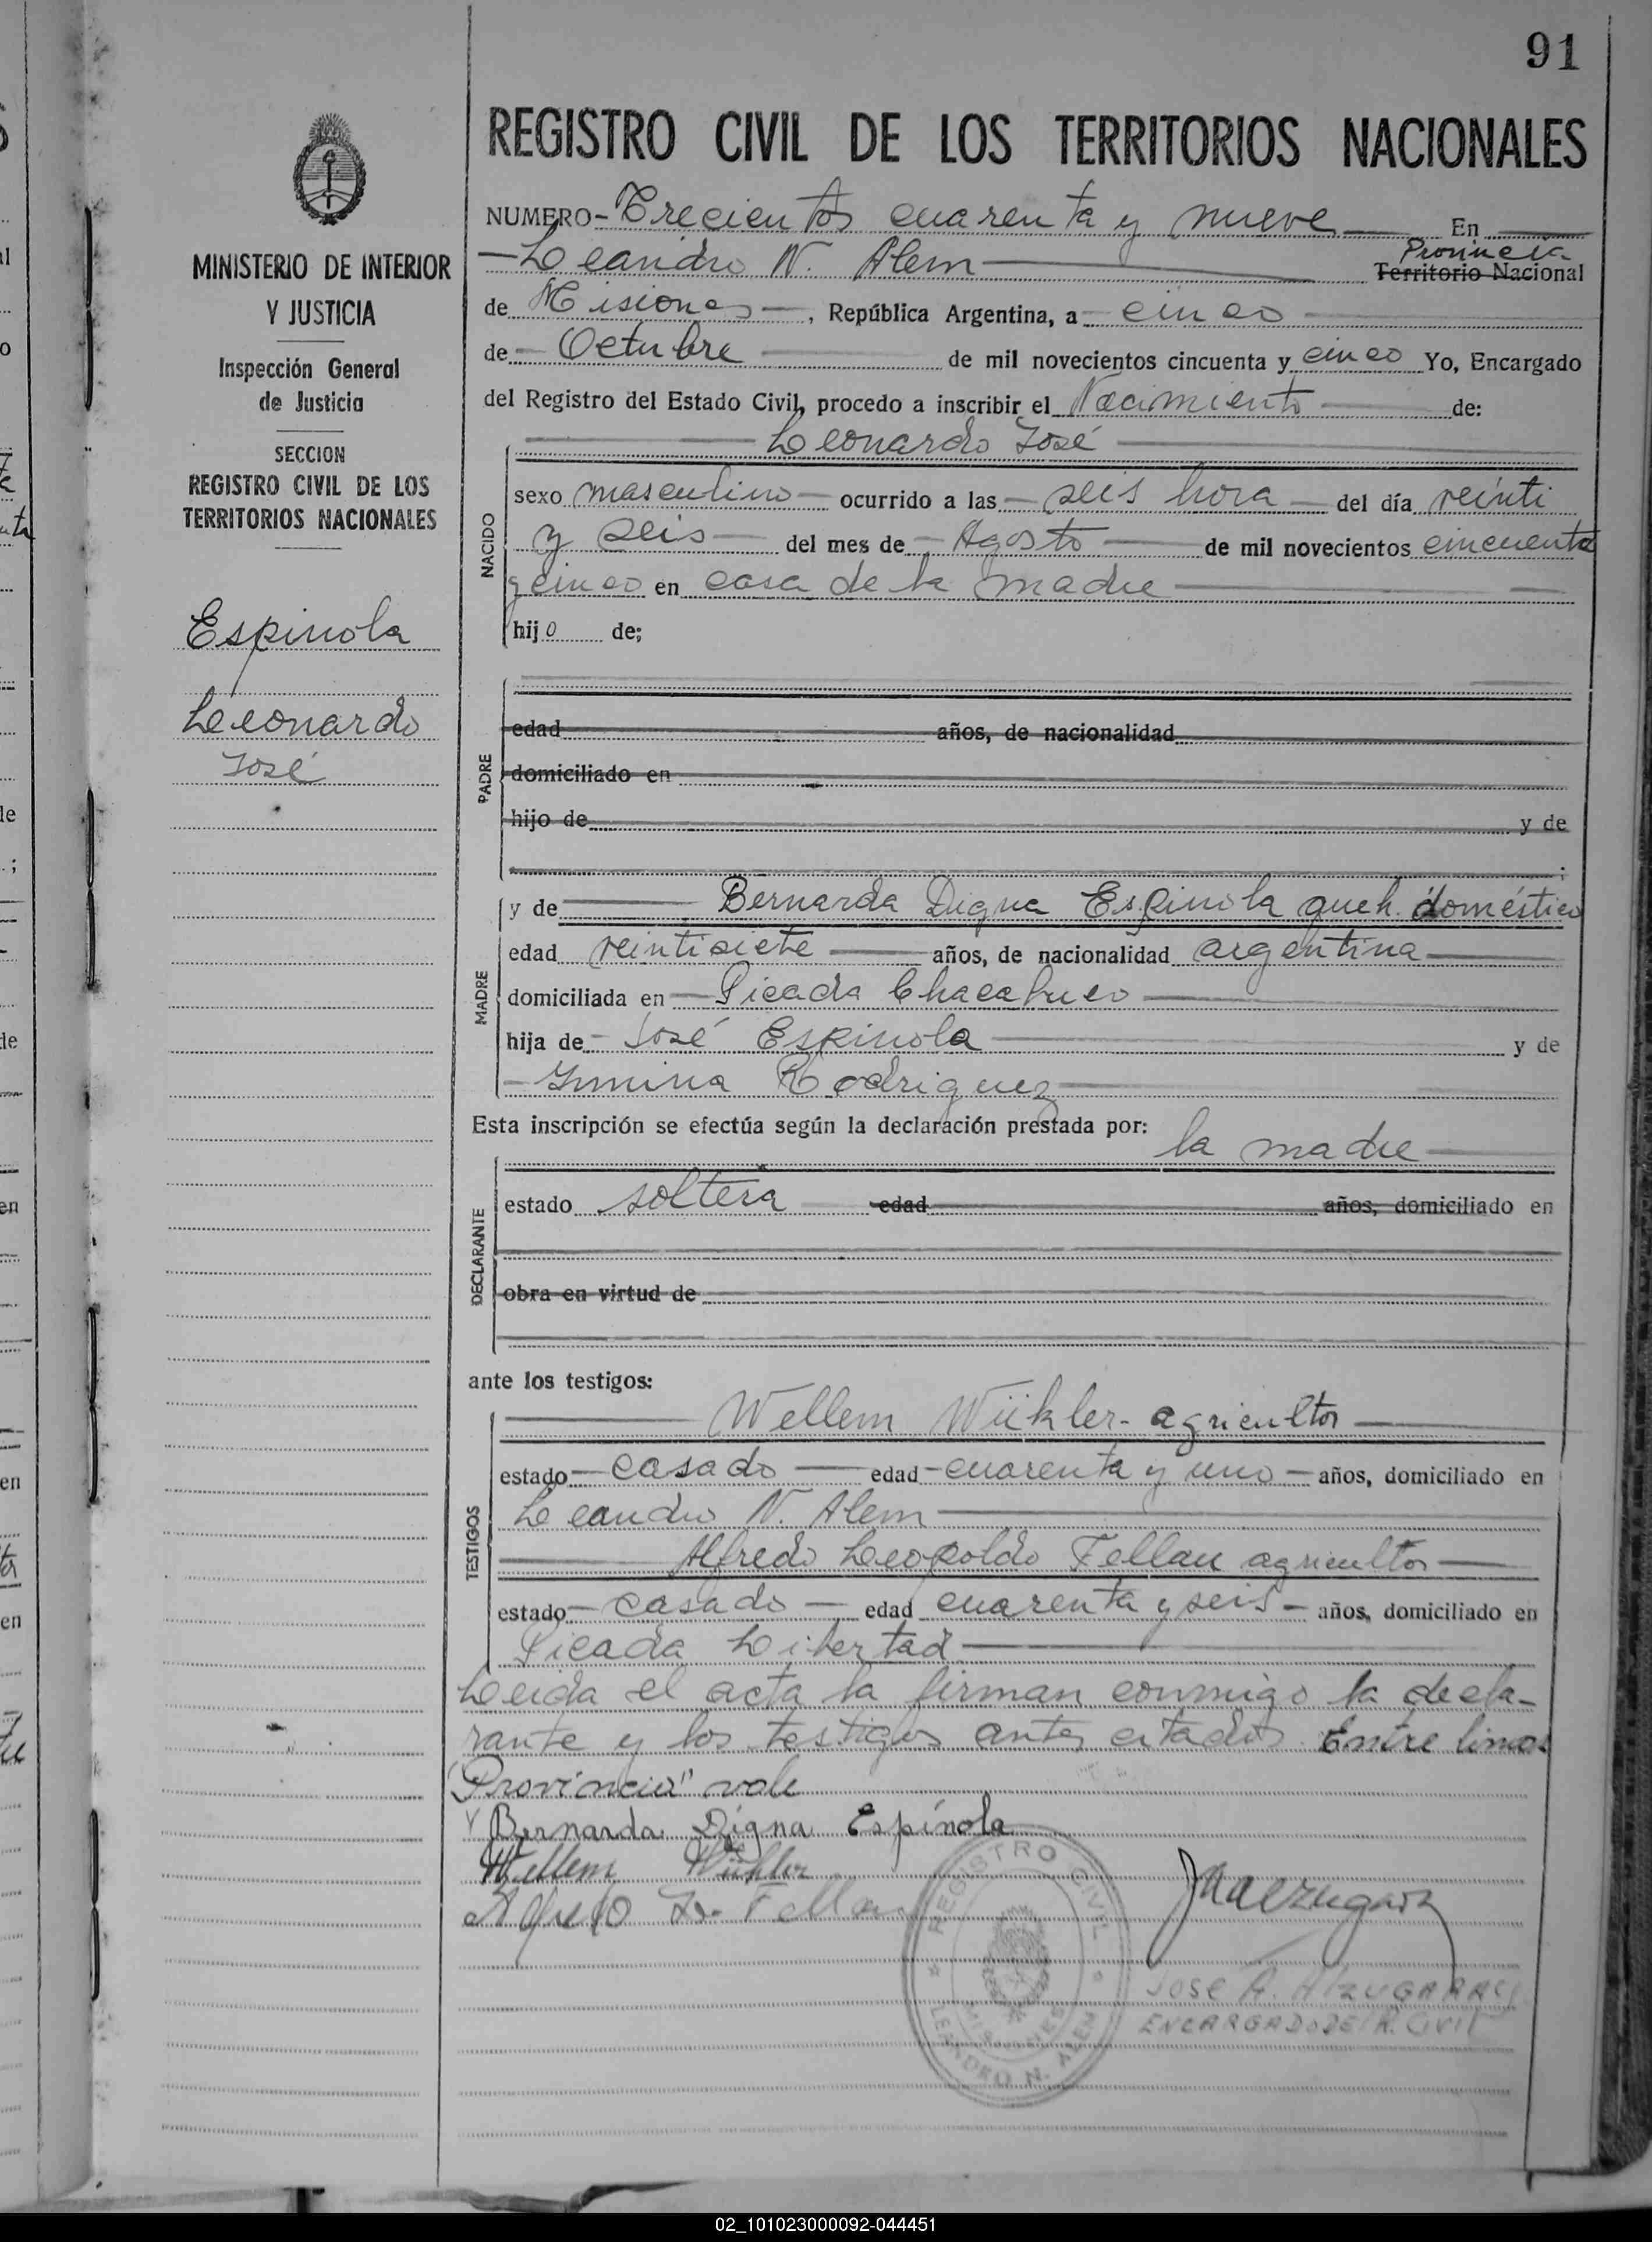 91
REGISTRO CIVIL DE LOS TERRITORIOS NACIONALES
MINISTERIO DE INTERIOR
Y JUSTICIA
Inspección General
de Justicia
SECCION
REGISTRO CIVIL DE LOS
TERRITORIOS NACIONALES
Espinola
Leonardo
José
NUMERO Trecientos cuarenta y nueve En
Leandro N. Alem Provincia Territorio Nacional
de Misiones, República Argentina, a cinco
de Octubre de mil novecientos cincuenta y cinco Yo, Encargado
del Registro del Estado Civil, procedo a inscribir el Nacimiento de:
NACIDO
Leonardo José
sexo masculino ocurrido a las seis hora del día veinti
y seis del mes de Agosto de mil novecientos cincuenta
y cinco en casa de la madre
hijo de;
PADRE
edad años, de nacionalidad
domiciliado en
hijo de y de
;
MADRE
y de Bernarda Digna Espinola queh. doméstico
edad veintisiete años, de nacionalidad argentina
domiciliada en Picada Chacabuco
hija de José Espinola y de
Rodriguez
Esta inscripción se efectúa según la declaración prestada por:
la madre
DECLARANTE
estado soltera edad años, domiciliado en
obra en virtud de
ante los testigos:
TESTIGOS
Wellem Wükler - agricultor
estado casado edad cuarenta y uno años, domiciliado en
Leandro N. Alem
Alfredo Leopoldo Fellau agricultor
estado casado edad cuarenta y seis años, domiciliado en
Picada Libertad
Leida el acta la firman conmigo la decla-
rante y los testigos antes citados Entre lineas
"Provincia" vale
Bernarda Digna Espínola
Wellem Wükler
Alfredo L. Fellau
REGISTRO CIVIL
MISIONES
LEANDRO N. ALEM
JOSE A. AIZUGARAY
ENCARGADO DEL R. CIVIL
02_101023000092-044451